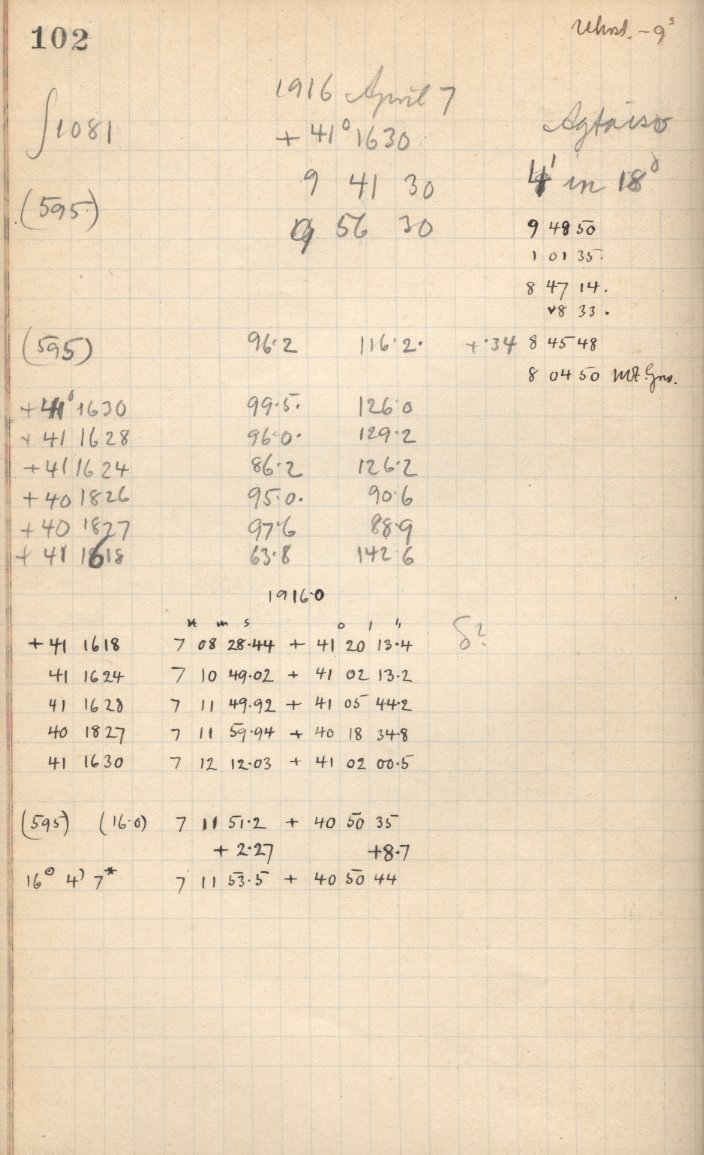 102
Uhrst. -9ˢ
1916 April 7
∫1081
+ 41° 1630
9 41 30
4' in 18°
(595)
9 56 30
9 48 50
1 01 35.
8 47 14.
8 33.
(595) 96.2 116.2. +.34 8 45 48
8 04 50
+41° 1630 99.5. 126.0
+ 41 1628 96.0. 129.2
+41 1624 86.2 126.2
+40 1826 95.0. 90.6
+40 1827 97.6 88.9
+ 41 1618 63.8 142.6
1916.0
h m s ° ' "
+41 1618 7 08 28.44 + 41 20 13.4 δ?
41 1624 7 10 49.02 + 41 02 13.2
41 1628 7 11 49.92 + 41 05 44.2
40 1827 7 11 59.94 + 40 18 34.8
41 1630 7 12 12.03 + 41 02 00.5
(595) (16.0) 7 11 51.2 + 40 50 35
+ 2.27 +8.7
16° 4) 7* 7 11 53.5 + 40 50 44